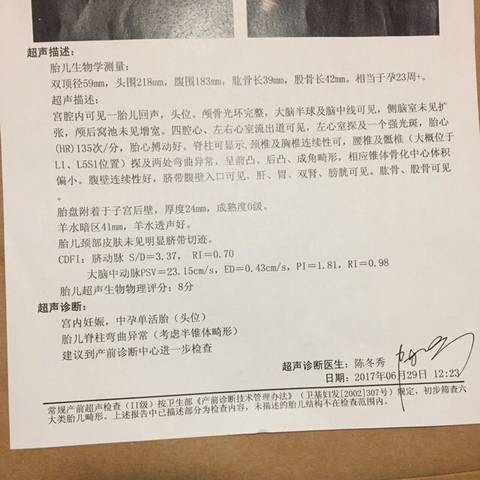 超声描述：
胎儿生物学测量：
双顶径59mm，头围218mm，腹围183mm，肱骨长39mm，股骨长42mm。相当于孕23周+。
超声描述：
宫腔内可见一胎儿回声，头位。颅骨光环完整，大脑半球及脑中线可见，侧脑室未见扩
张，颅后窝池未见增宽。四腔心、左右心室流出道可见，左心室探及一个强光斑，胎心
(HR)135次/分，胎心搏动好。脊柱可显示,颈椎及胸椎连续性可，腰椎及骶椎（大概位于
L1、L5S1位置）探及两处弯曲异常，呈前凸、后凸、成角畸形，相应椎体骨化中心体积
偏小。腹壁连续性好，脐带腹壁入口可见，肝、胃、双肾、膀胱可见。肱骨、股骨可见
。
胎盘附着于子宫后壁，厚度24mm，成熟度0级。
羊水暗区41mm，羊水透声好。
胎儿颈部皮肤未见明显脐带切迹。
CDFI：脐动脉 S/D=3.37， RI=0.70
大脑中动脉PSV=23.15cm/s，ED=0.43cm/s，PI=1.81，RI=0.98
胎儿超声生物物理评分：8分
超声诊断：
宫内妊娠，中孕单活胎（头位）
胎儿脊柱弯曲异常（考虑半椎体畸形）
建议到产前诊断中心进一步检查
超声诊断医生：陈冬秀
日期：2017年06月29日 12:23
常规产前超声检查（II级）按卫生部《产前诊断技术管理办法》（卫基妇发[2002]307号）规定，初步筛查六
大类胎儿畸形。上述报告中已描述部分为检查内容，未描述的胎儿结构不在检查范围内。